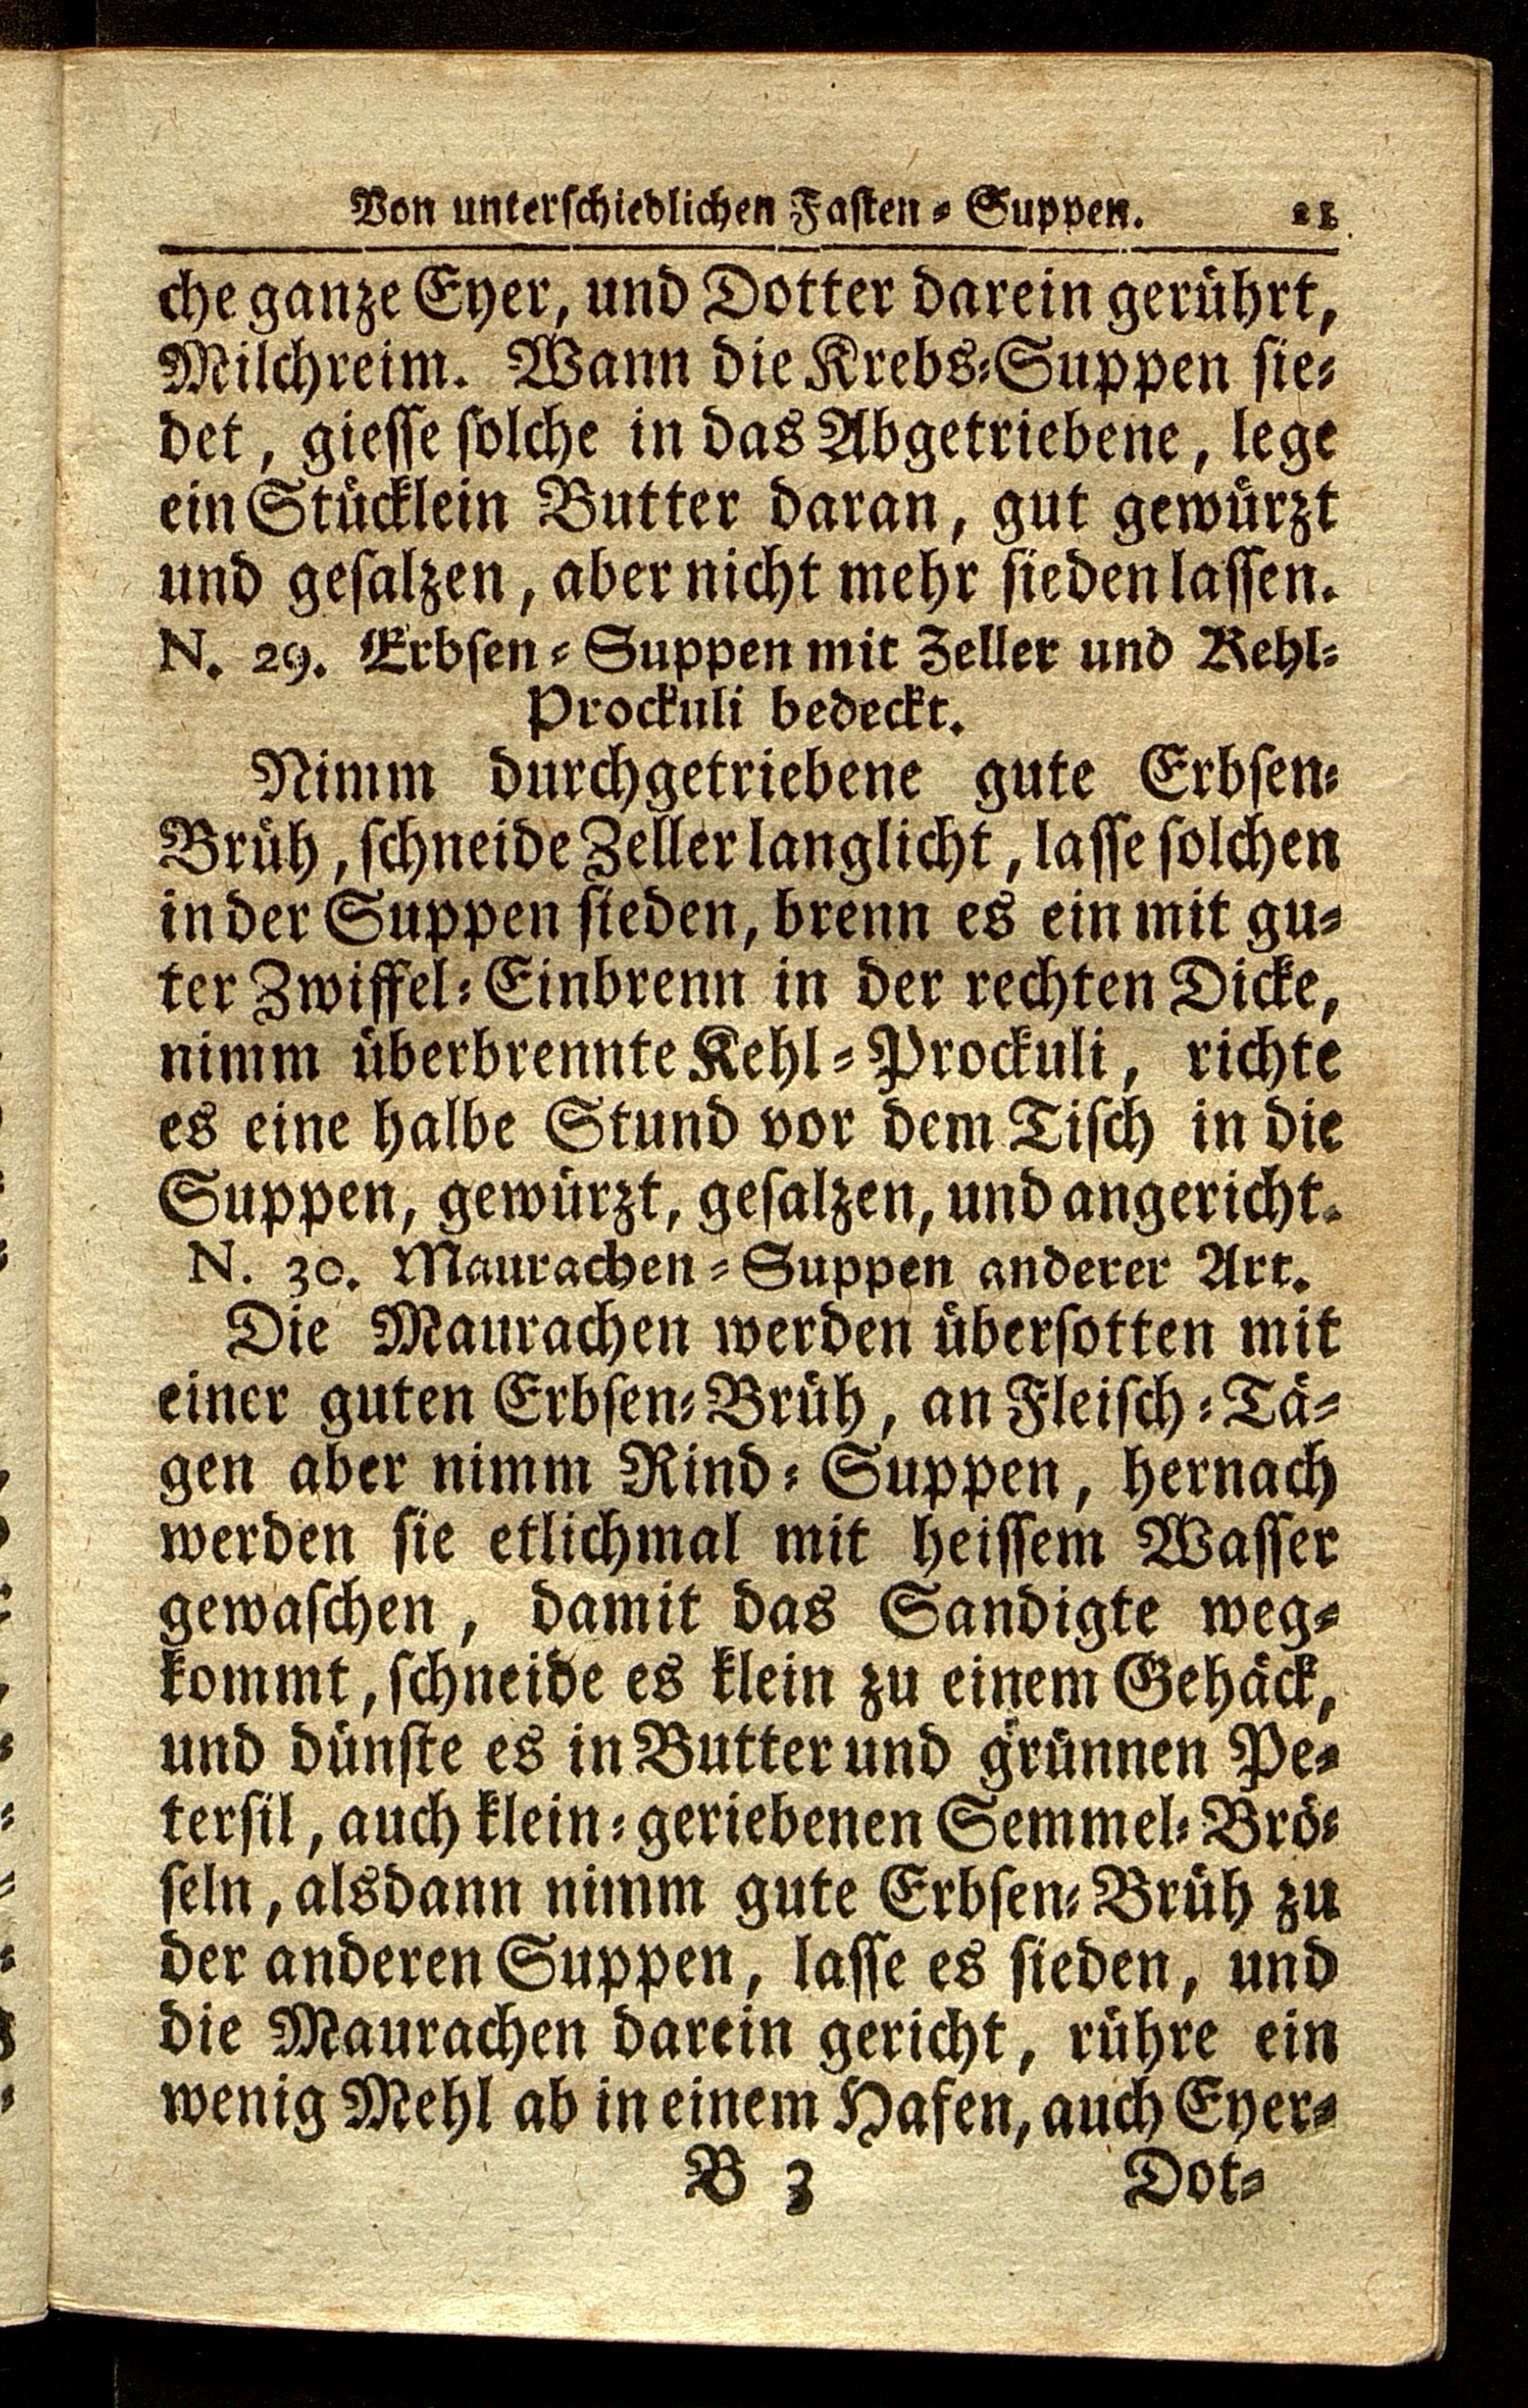 Von unterschiedlichen Fasten-Suppen. 21
che ganze Eyer, und Dotter darein gerührt,
Milchreim. Wann die Krebs-Suppen sie-
det, giesse solche in das Abgetriebene, lege
ein Stücklein Butter daran, gut gewürzt
und gesalzen, aber nicht mehr sieden lassen.
N. 29. Erbsen-Suppen mit Zeller und Kehl-
Prockuli bedeckt.
Nimm durchgetriebene gute Erbsen-
Brüh, schneide Zeller langlicht, lasse solchen
in der Suppen sieden, brenn es ein mit gu-
ter Zwiffel-Einbrenn in der rechten Dicke,
nimm überbrennte Kehl-Prockuli, richte
es eine halbe Stund vor dem Tisch in die
Suppen, gewürzt, gesalzen, und angericht.
N. 30. Maurachen-Suppen anderer Art.
Die Maurachen werden übersotten mit
einer guten Erbsen-Brüh, an Fleisch-Tä-
gen aber nimm Rind-Suppen, hernach
werden sie etlichmal mit heissem Wasser
gewaschen, damit das Sandigte weg-
kommt, schneide es klein zu einem Gehäck,
und dünste es in Butter und grünnen Pe-
tersil, auch klein-geriebenen Semmel-Brö-
seln, alsdann nimm gute Erbsen-Brüh zu
der anderen Suppen, lasse es sieden, und
die Maurachen darein gericht, rühre ein
wenig Mehl ab in einem Hafen, auch Eyer-
B 3 Dot-